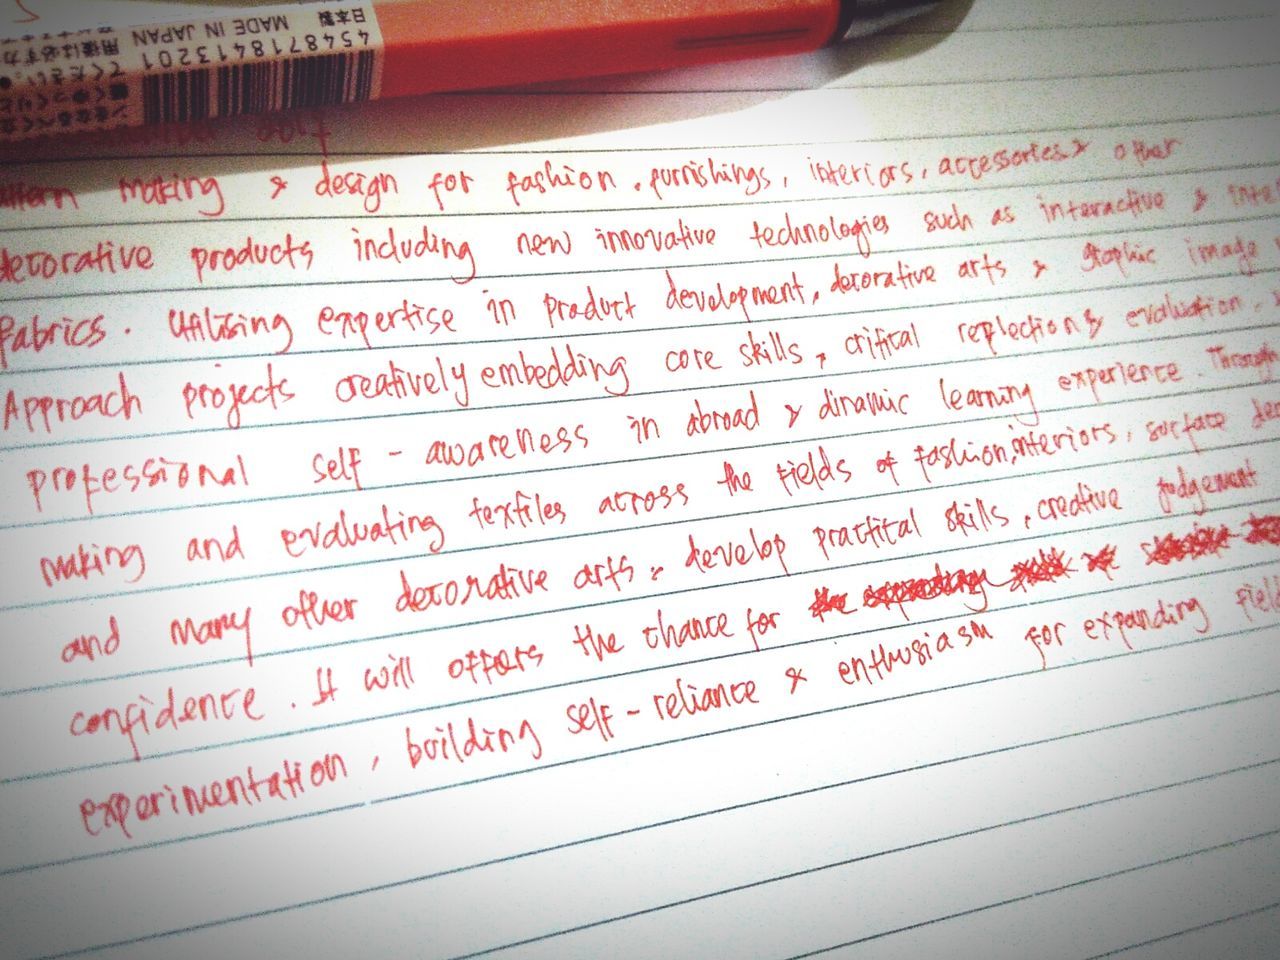 日本製
MADE IN JAPAN
4548718413201
making & design for fashion, furnishings, interiors, accessories & other
decorative products including new innovative technologies such as interactive &
fabrics. Utilising expertise in product development, decorative arts & graphic image
Approach projects creatively embedding core skills, critical replection & evaluation.
professional self-awareness in abroad & dinamic learning experience. Through
making and evaluating textiles across the fields of fashion, interiors, surface
and many other decorative arts, develop practital skills, creative judgement
confidence. It will offers the chance for
experimentation, building self-reliance & enthusiasm for expanding